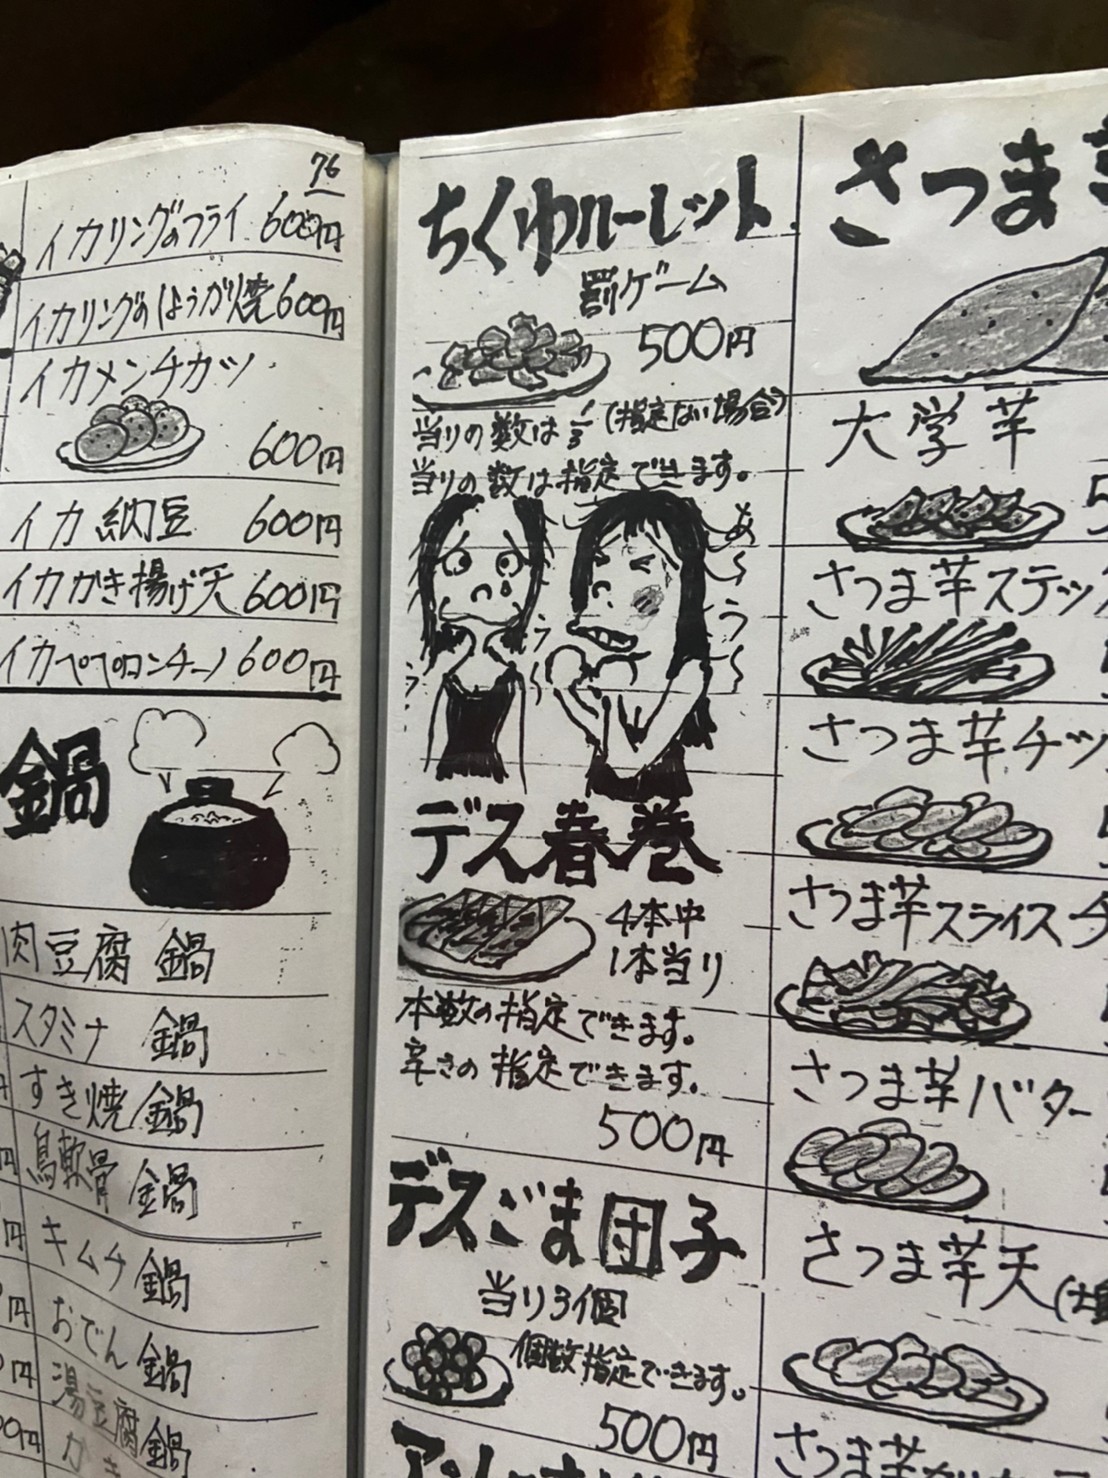 76
イカリングのフライ 600円
イカリングのしょうが焼 600円
イカメンチカツ
600円
イカ納豆 600円
イカかき揚げ天 600円
イカペペロンチーノ 600円
鍋
肉豆腐鍋
スタミナ鍋
すき焼鍋
鳥軟骨鍋
キムチ鍋
おでん鍋
湯豆腐鍋
ちくわルーレット
罰ゲーム
500円
当りの数は1/3(指定ない場合)
当りの数は指定できます。
う〜
あ〜う〜
デス春巻
4本中
1本当り
本数の指定できます。
辛さの指定できます。
500円
デスごま団子
当り3個
個数指定できます。
500円
さつま
大学芋
さつま芋スティッ
さつま芋チッ
さつま芋スライスチ
さつま芋バター
さつま芋天
さつま芋